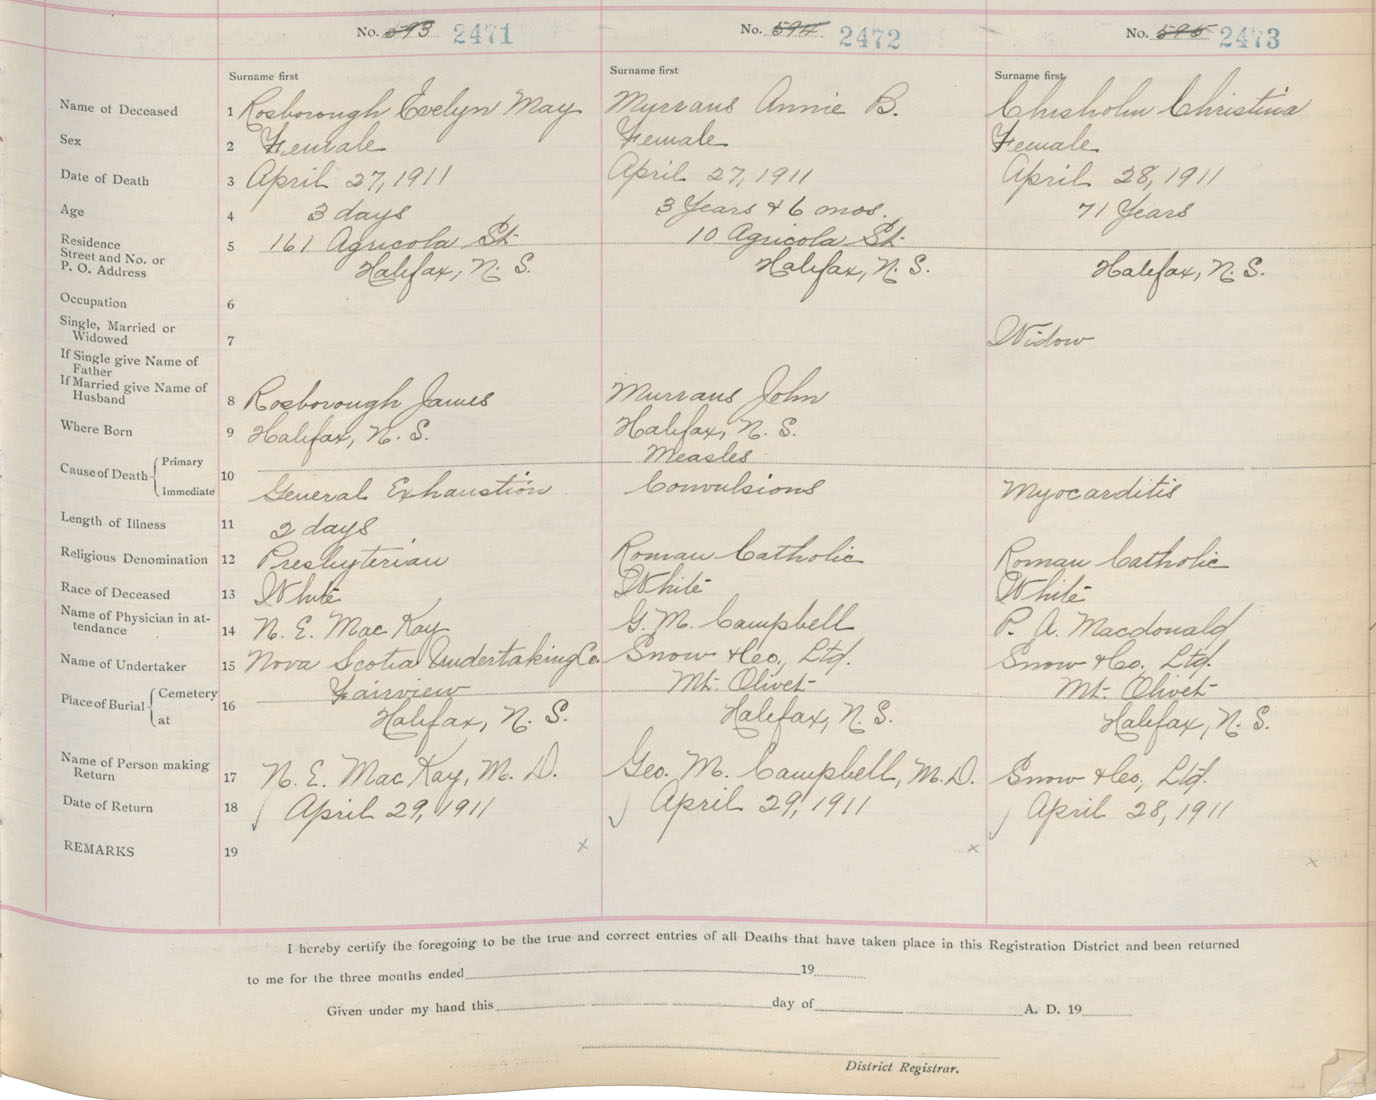 No. 593 2471 No. 594 2472 No. 595 2473
Surname first Surname first Surname first
Name of Deceased 1 Rosborough Evelyn May Murrans Annie B. Chisholm Christina
Sex 2 Female Female Female
Date of Death 3 April 27, 1911 April 27, 1911 April 28, 1911
Age 4 3 days 3 Years & 6 mos. 71 Years
Residence 5 161 Agricola St. 10 Agricola St.
Street and No. or
P. O. Address Halifax, N. S. Halifax, N. S. Halifax, N. S.
Occupation 6
Single, Married or
Widowed 7 Widow
If Single give Name of
Father
If Married give Name of
Husband 8 Rosborough James Murrans John
Where Born 9 Halifax, N. S. Halifax, N. S.
Cause of Death Primary 10 Measles
Immediate General Exhaustion Convulsions Myocarditis
Length of Illness 11 2 days
Religious Denomination 12 Presbyterian Roman Catholic Roman Catholic
Race of Deceased 13 White White White
Name of Physician in at-
tendance 14 N. E. MacKay G. M. Campbell P. A. Macdonald
Name of Undertaker 15 Nova Scotia Undertaking Co. Snow & Co., Ltd. Snow & Co. Ltd.
Place of Burial Cemetery 16 Fairview Mt. Olivet Mt. Olivet
at Halifax, N. S. Halifax, N. S. Halifax, N. S.
Name of Person making
Return 17 N. E. MacKay, M. D. Geo. M. Campbell, M. D. Snow & Co., Ltd.
Date of Return 18 April 29, 1911 April 29, 1911 April 28, 1911
REMARKS 19 x x x
I hereby certify the foregoing to be the true and correct entries of all Deaths that have taken place in this Registration District and been returned
to me for the three months ended 19
Given under my hand this day of A. D. 19
District Registrar.